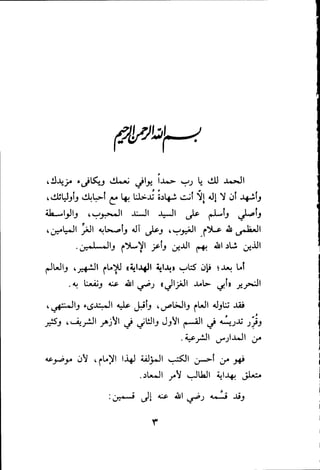 بسم الله الرحمن الرحيم
الحمد لك يا رب حمداً يوافي نعمك ويكافىء مزيدك،
وأشهد أن لا إله إلا أنت شهادة تدخلنا بها مع أحبابك وأوليائك،
وأصلي وأسلم على السيد السند الحبيب، والواسطة
العظمى والقريب، وعلى آله وأصحابه الغر الميامين،
الذين شاد الله بهم الدين وأعز الإسلام والمسلمين.
أما بعد؛ فإن كتاب «بداية الهداية» للإمام الشهير، والعالم
النحرير «أبي حامد الغزالي» رضي الله عنه ونفعنا به.
فقد تناوله العلماء والطلاب، وأقبل عليه المبتدىء والمنتهي،
وقرر تدريسه في القسم الأول والثاني في الأزهر الشريف، وكثير
من المدارس الشرعية.
فهو من أحسن الكتب المؤلفة لهذا المرام، لأن موضوعه
متعلق بهداية الطالب لأمر المعاد.
وقد قسمه رضي الله عنه إلى قسمين:
٣